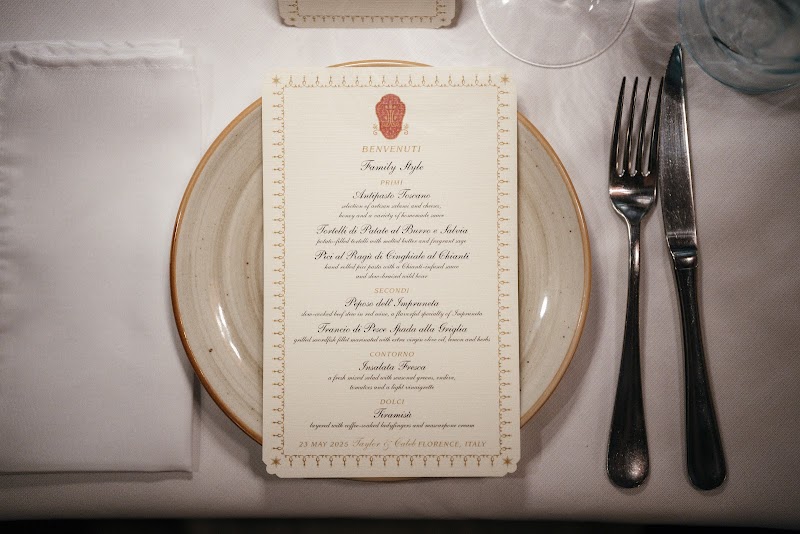 BENVENUTI
Family Style
PRIMI
Antipasto Toscano
selection of artisan salumi and cheese,
honey and a variety of homemade sauce
Tortelli di Patate al Burro e Salvia
potato-filled tortelli with melted butter and fragrant sage
Pici al Ragù di Cinghiale al Chianti
hand rolled pici pasta with a Chianti-infused sauce
and slow-braised wild boar
SECONDI
Peposo dell'Impruneta
slow-cooked beef stew in red wine, a flavorful specialty of Impruneta
Trancio di Pesce Spada alla Griglia
grilled swordfish fillet marinated with extra virgin olive oil, lemon and herbs
CONTORNO
Insalata Fresca
a fresh mixed salad with seasonal greens, endive,
tomatoes and a light vinaigrette
DOLCI
Tiramisù
layered with coffee-soaked ladyfingers and mascarpone cream
23 MAY 2025 Taylor & Caleb FLORENCE, ITALY